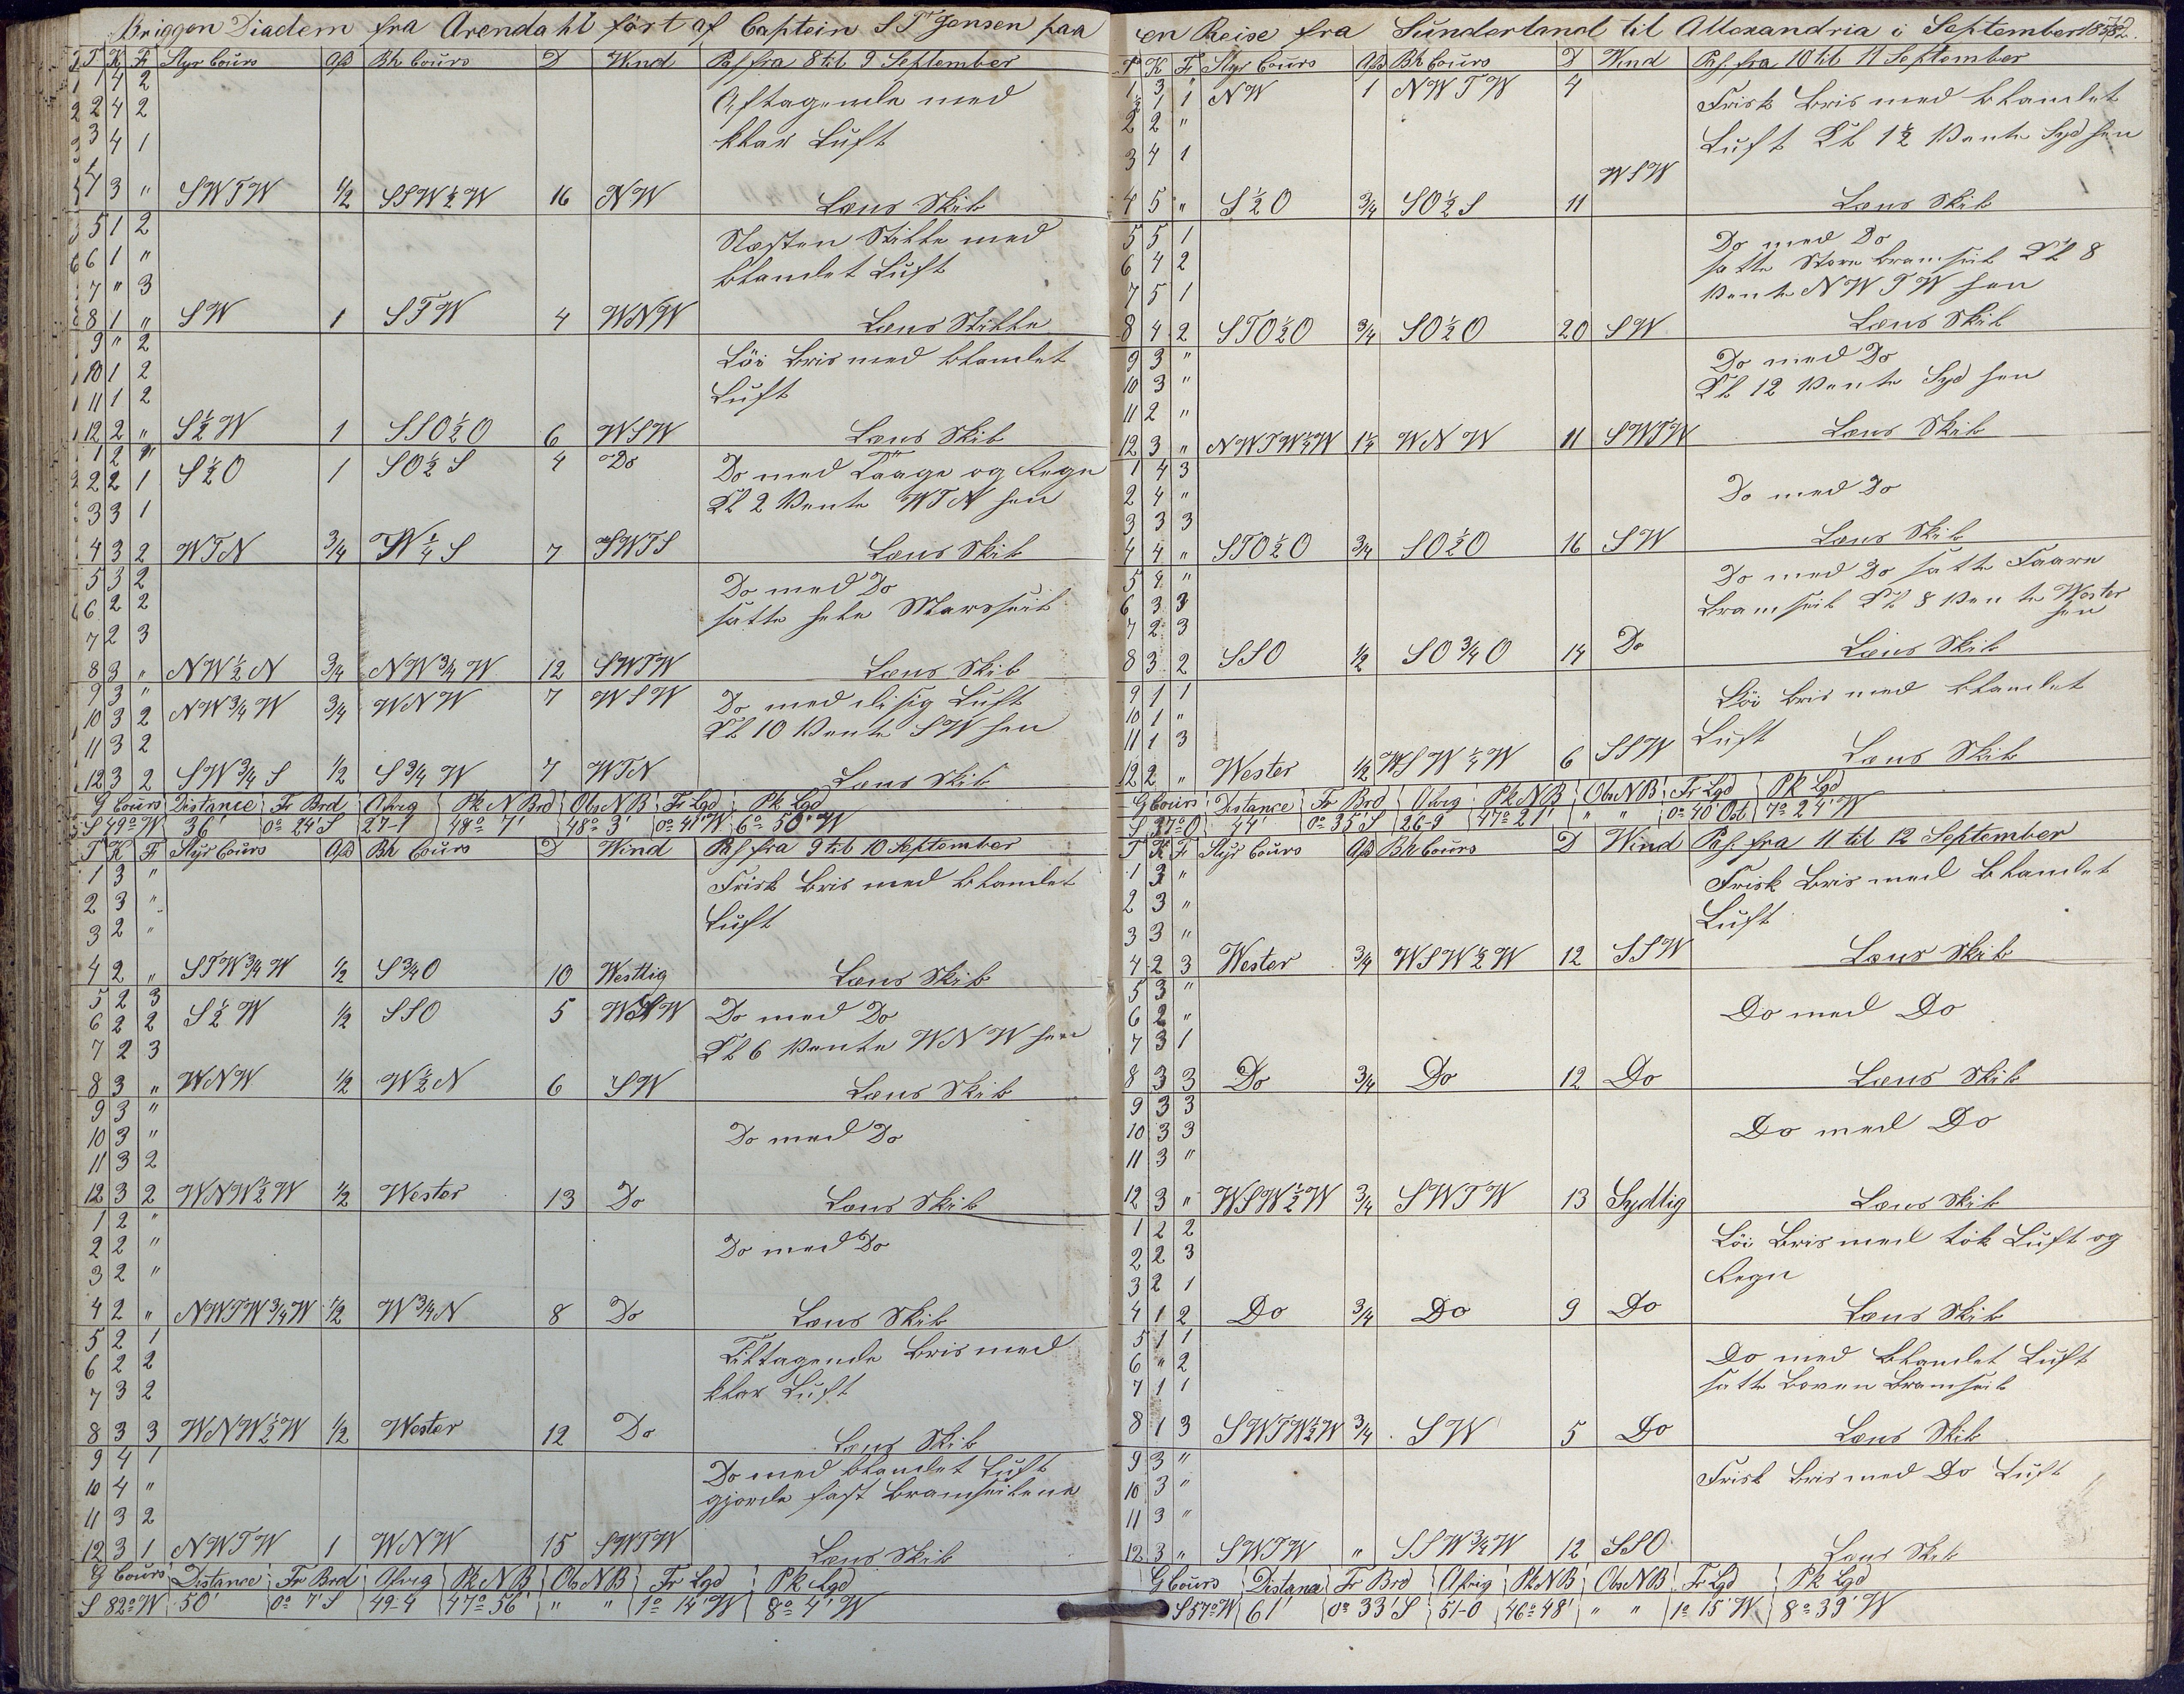 Briggen Diadem fra Arendahl fört af Captein S T Jensen paa
T K F Styr Cours Afd Bh Cours D Wind Pas fra 8 til 9 September
1 4 2 Aftagende med
2 4 2 klar Luft
3 4 1
4 3 " SWTW 1/2 SSW½W 16 NW Læns Skib
5 1 2 Næsten Stille med
6 1 " blandet Luft
7 " 3
8 1 " SW 1 STW 4 WNW Læns Stille
9 " 2 Löi Bris med blandet
10 1 2 Luft
11 1 2
12 2 " S½W 1 SSO½O 6 WSW Læns Skib
1 2 "
2 2 1 S½O 1 SO½S 4 Do Do med Taage og Regn
3 3 1 Kl 2 Vente WTN hen
4 3 2 WTN 3/4 W¼S 7 SWTS Læns Skib
5 3 2 Do med Do
6 2 2 satte hele Marsseil
7 2 3
8 3 " NW½N 3/4 NW3/4W 12 SWTW Læns Skib
9 3 "
10 3 2 NW3/4W 3/4 WNW 7 WSW Do med disig Luft
11 3 2 Kl 10 Vente SW hen
12 3 2 SW3/4S 1/2 S3/4W 7 WTN Læns Skib
G Cours Distance Fr Brd Afvig Pk N Brd Obs N B Fr Lgd Pk Lgd
S 49° W 36' 0° 24' S 27-1 48° 7' 48° 3' 0° 41' W 6° 50' W
T K F Styr Cours Afd Bh Cours D Wind Pas fra 9 til 10 September
1 3 " Frisk Bris med blandet
2 3 " Luft
3 2 "
4 2 " STW3/4W 1/2 S3/4O 10 Westlig Læns Skib
5 2 3
6 2 2 S½W 1/2 SSO 5 WSW Do med Do
7 2 3 Kl 6 Vente WNW hen
8 3 " WNW 1/2 W½N 6 SW Læns Skib
9 3 "
10 3 " Do med Do
11 3 2
12 3 2 WNW½W 1/2 Wester 13 Do Læns Skib
1 2 "
2 2 " Do med Do
3 2 "
4 2 " NWTW3/4W 1/2 W3/4N 8 Do Læns Skib
5 2 1 Tiltagende Bris med
6 2 2 klar Luft
7 3 2
8 3 3 WNW½W 1/2 Wester 12 Do Læns Skib
9 4 1 Do med blandet Luft
10 4 " gjorde fast Bramseilene
11 3 2
12 3 1 NWTW 1 WNW 15 SWTW Læns Skib
G Cours Distance Fr Brd Afvig Pk N B Obs N B Fr Lgd Pk Lgd
S 82° W 50' 0° 7' S 49-4 47° 56' " " 1° 14' W 8° 4' W
en Reise fra Sunderland til Allexandria i September
T K F Styr Cours Afd Bh Cours D Wind Pas. fra 10 til 11 September
1 3 "
½ 1 1 NW 1 NWTW 4 Frisk Bris med blandet
2 2 " Luft Kl 1½ Vente Syd hen
3 4 1
4 5 " S½O 3/4 SO½S 11 WSW Læns Skib
5 5 1 Do med Do
6 4 2 satte Store Bramseil Kl 8
7 5 1 Vente NWTW hen
8 4 2 STO½O 3/4 SO½O 20 SW Læns Skib
9 3 " Do med Do
10 3 " Kl 12 Vente Syd hen
11 2 "
12 3 " NWTW¼W 1¼ WNW 11 SWTW Læns Skib
1 4 3
2 4 " Do med Do
3 3 3
4 4 " STO½O 3/4 SO½O 16 SW Læns Skib
5 4 " Do med Do satte Faare
6 3 3 Bramseil Kl 8 Vente Wester
7 2 3 hen
8 3 2 SSO 1/2 SO3/4O 14 Do Læns Skib
9 1 1 Löi Bris med blandet
10 1 " Luft
11 1 3
12 2 " Wester 1/2 WSW½W 6 SSW Læns Skib
G Cours Distance Fr Brd Afvig Pk N B Obs N B Fr Lgd Pk Lgd
S 37° O 44' 0° 35' S 26-9 47° 21' " " 0° 40' Ost 7° 24' W
T K F Styr Cours Afd Bh Cours D Wind Pas. fra 11 til 12 September
1 3 " Frisk Bris med blandet
2 3 " Luft
3 3 "
4 2 3 Wester 3/4 WSW½W 12 SSW Læns Skib
5 3 "
6 2 " Do med Do
7 3 1
8 3 3 Do 3/4 Do 12 Do Læns Skib
9 3 3
10 3 3 Do med Do
11 3 "
12 3 " WSW½W 3/4 SWTW 13 Sydlig Læns Skib
1 2 2 Löi Bris med tök Luft og
2 2 3 Regn
3 2 1
4 1 2 Do 3/4 Do 9 Do Læns Skib
5 1 1 Do med blandet Luft
6 " 2 satte Boven Bramseil
7 1 1
8 1 3 SWTW½W 3/4 SW 5 Do Læns Skib
9 3 " Frisk Bris med Do Luft
10 3 "
11 3 "
12 3 " SWTW " SSW3/4W 12 SSO Læns Skib
G Cours Distanse Fr Brd Afvig Pk N B Obs N B Fr Lgd Pk Lgd
S 57° W 61' 0° 33' S 51-0 46° 48' " " 1° 15' W 8° 39' W